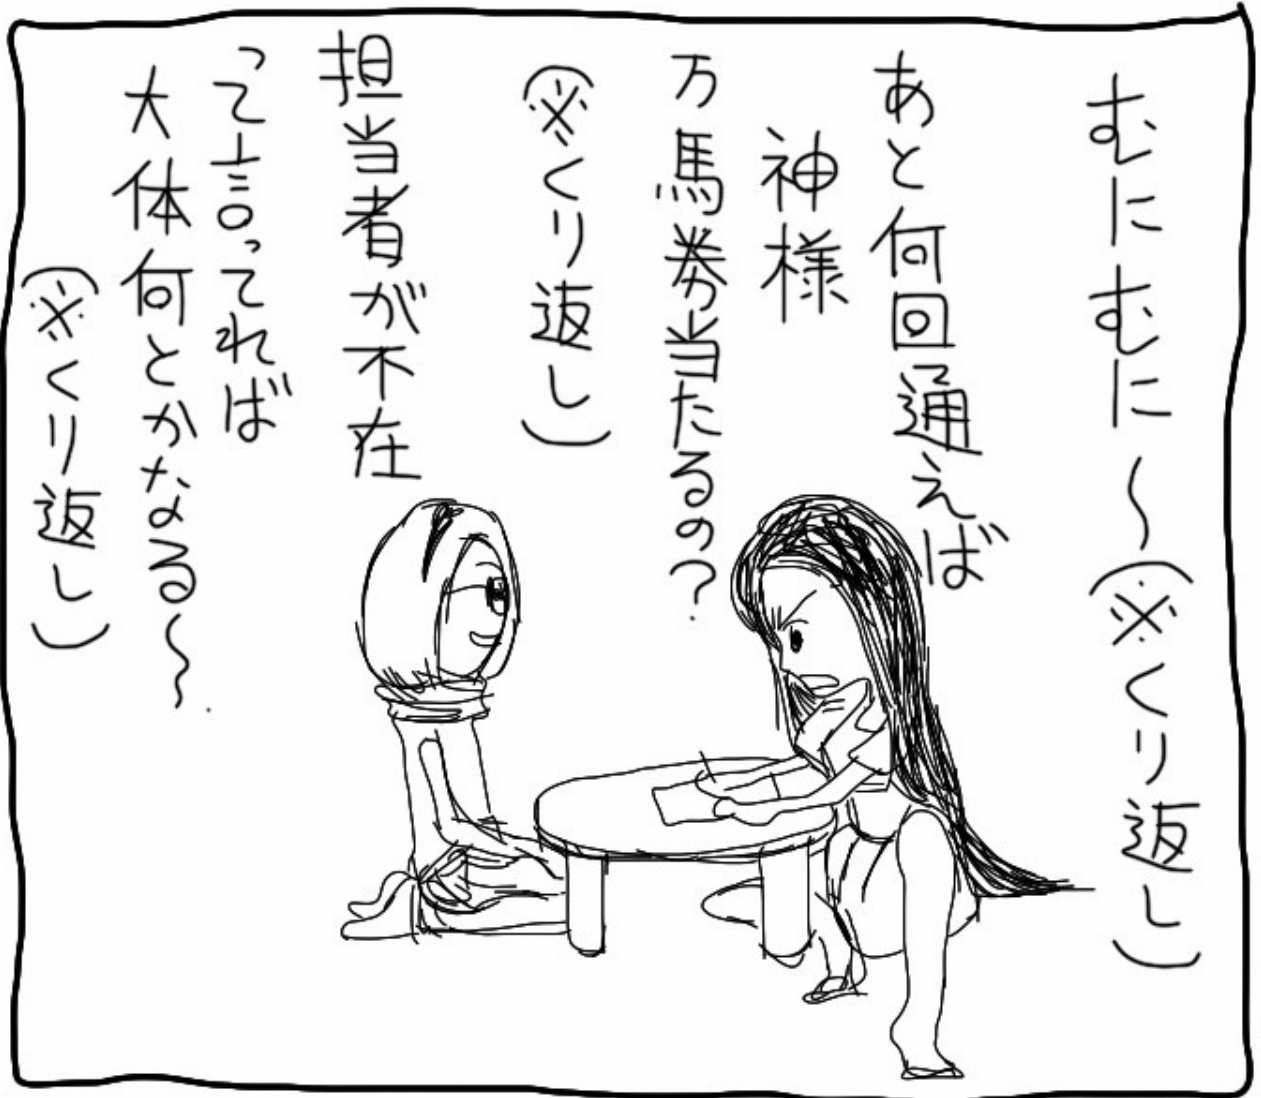 むにむに〜(※くり返し)
あと何回通えば
神様
万馬券当たるの?
(※くり返し)
担当者が不在
って言ってれば
大体何とかなる〜
(※くり返し)